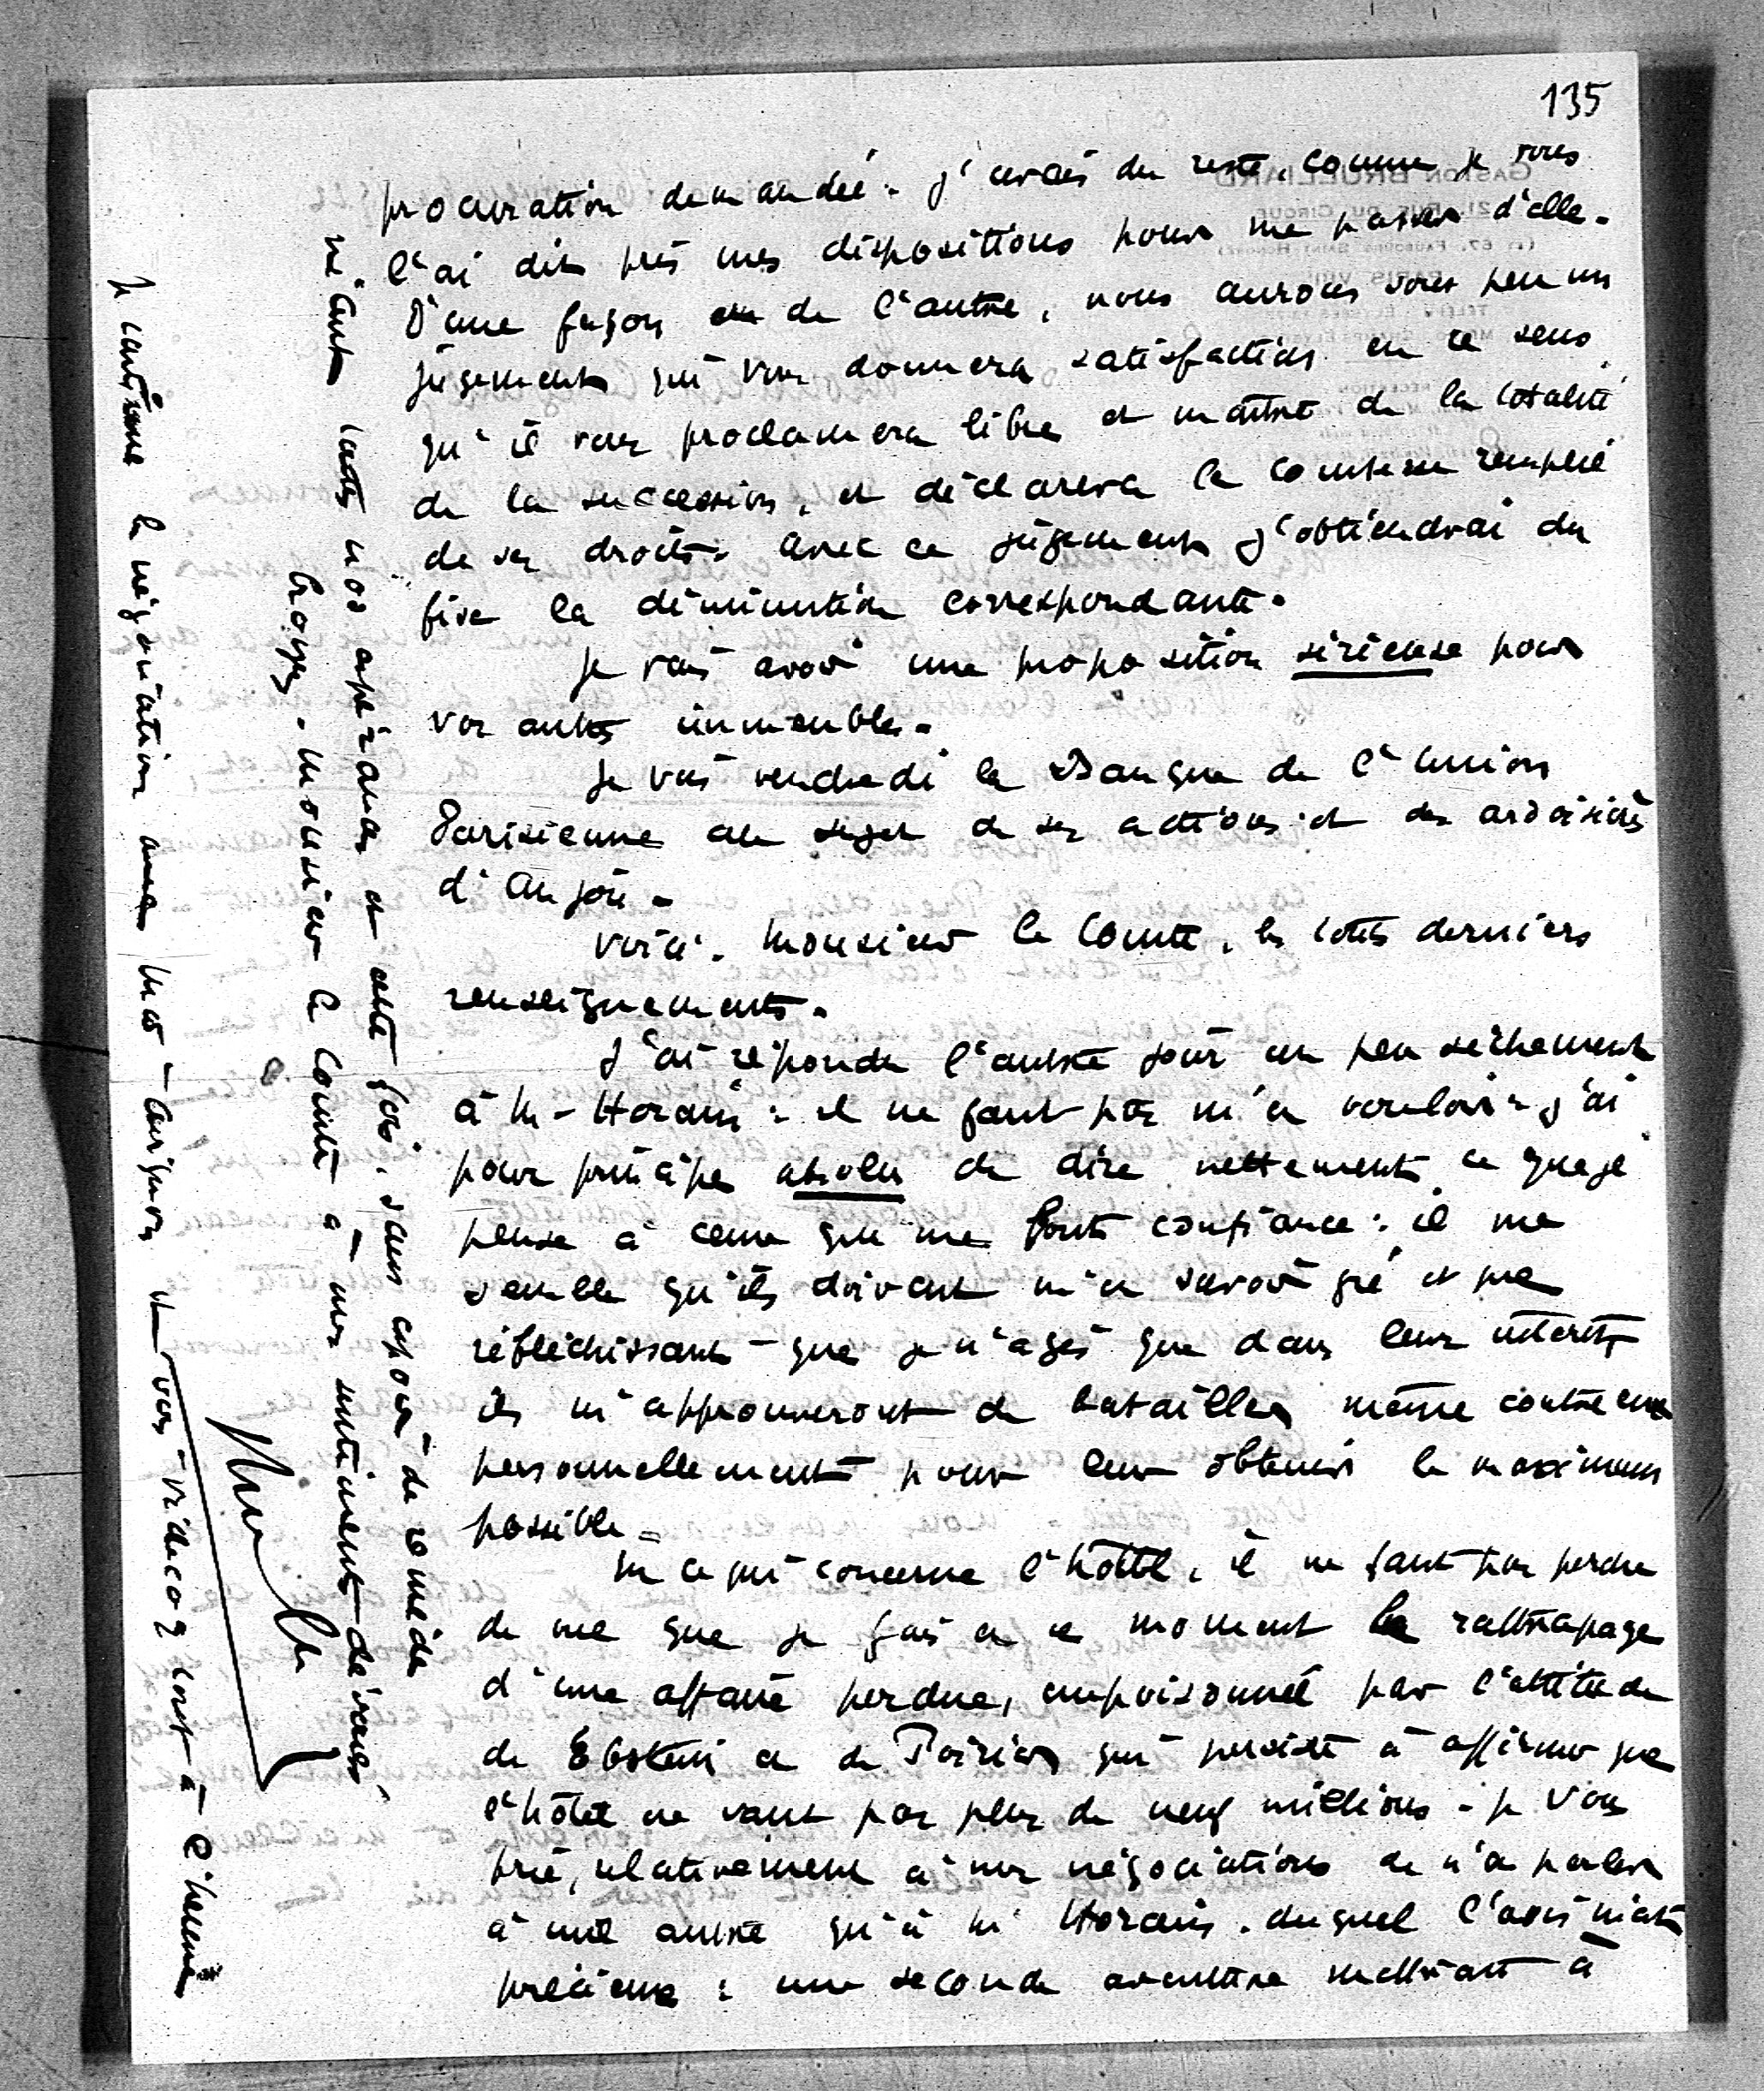 135
procuration demandée. J'avais du reste, comme je vous
l'ai dit pris mes dispositions pour me passer d'elle.
D'une façon ou de l'autre, nous aurons sous peu un
jugement qui vous donnera satisfaction en ce sens
qu'il vous proclamera libre et maître de la totalité
de la succession, et déclarera la comtesse remplie
de ses droits. Avec ce jugement j'obtiendrai du
fisc la diminution correspondante.
Je vais avoir une proposition sérieuse pour
vos autres immeubles.
Je vois vendredi la Banque de l'Union
Parisienne au sujet de ses actions et des ardoisières
d'Anjou.
Voici, Monsieur le Comte, les tous derniers
renseignements.
J'ai répondu l'autre jour un peu sèchement
à M. Horain : il ne faut pas m'en vouloir : j'ai
pour principe absolu de dire nettement ce que je
pense à ceux qui me font confiance : il me
semble qu'ils doivent m'en savoir gré et que
réfléchissant - que je n'agis que dans leur intérêt,
ils m'approuveront de batailler même contre eux
personnellement pour leur obtenir le maximum
possible.
En ce qui concerne l'hôtel, il ne faut pas perdre
de vue que je fais en ce moment le rattrapage
d'une affaire perdue, empoisonnée par l'attitude
de Ebstein et de Poirier qui persiste à affirmer que
l'hôtel ne vaut pas plus de neuf millions. Je vous
prie, relativement à mes négociations de n'en parler
à nul autre qu'à M. Horain, duquel l'avis m'est
précieux : une seconde aventure mettrait à
néant toutes nos espérances et cette fois, sans espoir de remède
Croyez, Monsieur le Comte à mes sentiments dévoués
Je continue la négociation avec Mo - Avignon et vois Videcoq corps à l'heure
GASTON BRULLIARD
21, RUE DU CIRQUE
PARIS VIII